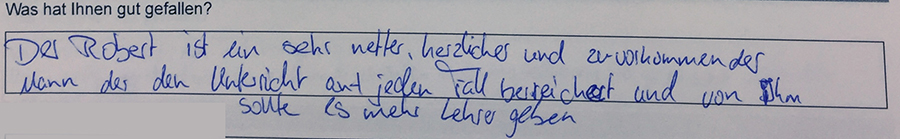 Was hat Ihnen gut gefallen?
Der Robert ist ein sehr netter, herzlicher und zuvorkommender
Mann der den Unterricht auf jeden Fall berreichert und von Ihm
sollte es mehr Lehrer geben